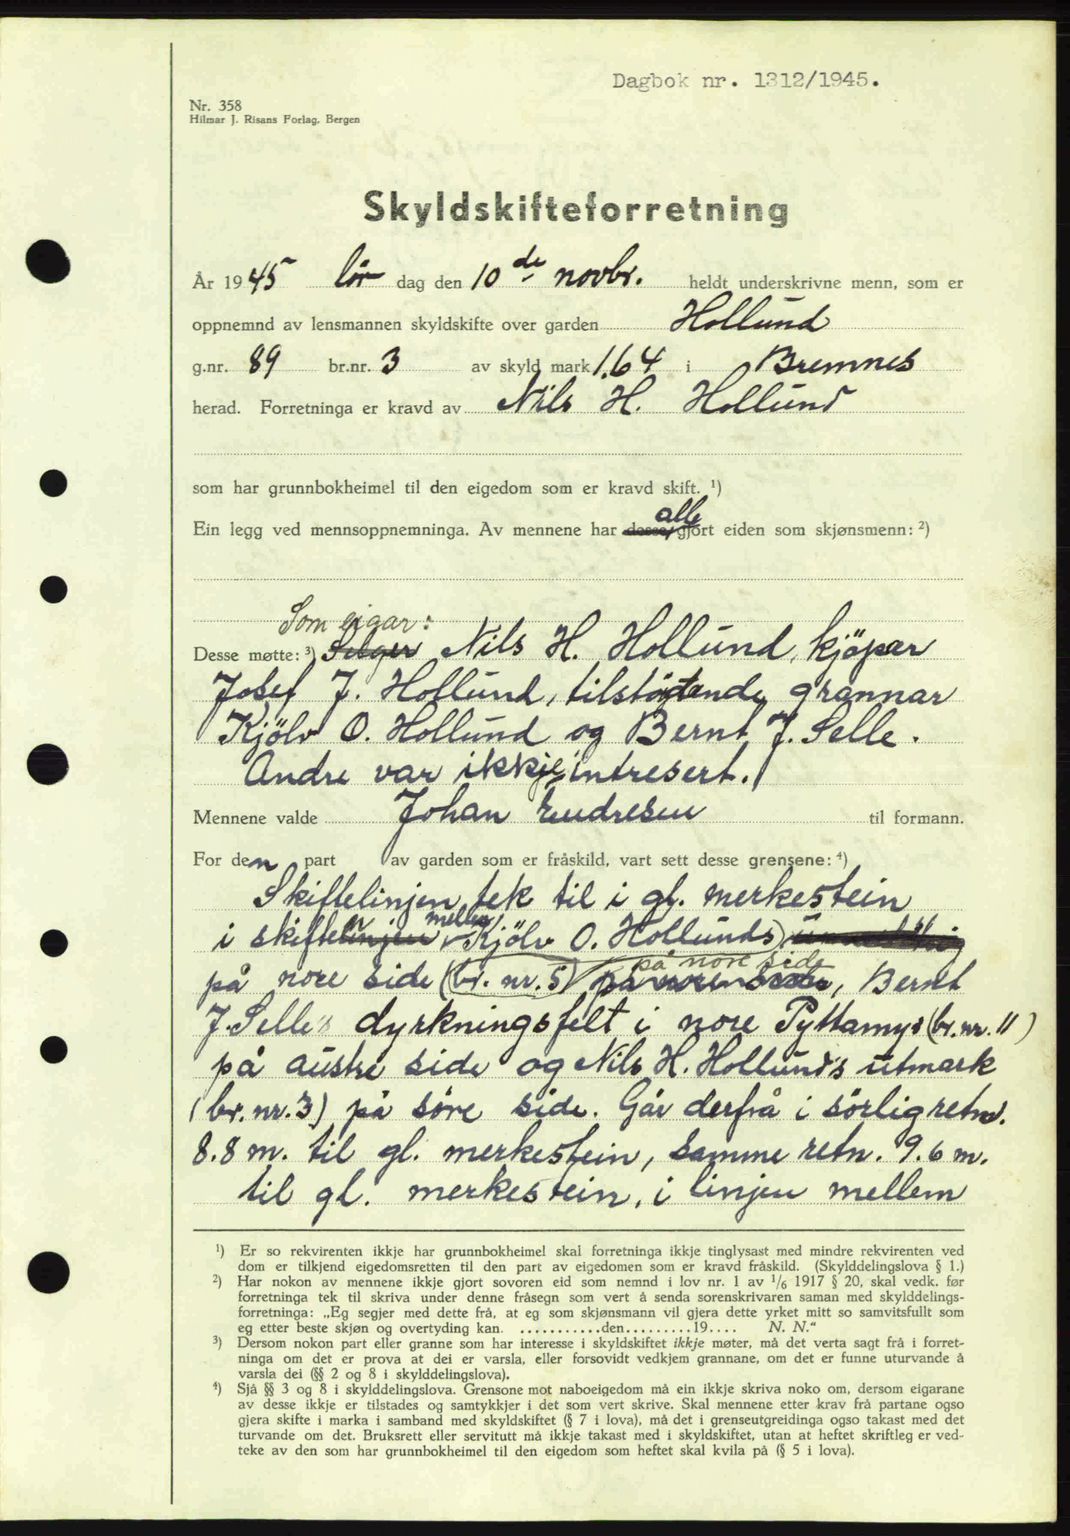 Dagbok nr. 1312/1945.
Nr. 358
Hilmar J. Risans Forlag, Bergen
Skyldskifteforretning
År 1945 lör dag den 10de novbr. heldt underskrivne menn, som er
oppnemnd av lensmannen skyldskifte over garden Hollund
g.nr. 89 br.nr. 3 av skyld mark 1.64 i Bremnes
herad. Forretninga er kravd av Nils H. Hollund
som har grunnbokheimel til den eigedom som er kravd skift. ¹)
alle
Ein legg ved mennsoppnemninga. Av mennene har desse gjort eiden som skjønsmenn: ²)
Som eigar:
Desse møtte: ³) Selger Nils H. Hollund, kjöper
Josef J. Hollund, tilstöytande grannar
Kjölv O. Hollund og Bernt J. Selle.
Andre var ikkje intresert.
Mennene valde Johan Endresen til formann.
For den part av garden som er fråskild, vart sett desse grensene: ⁴)
Skiftelinjen tek til i gl. merkestein
i skiftelinjen mellem Kjölv O. Hollunds
på nore side
på nore side (br. nr. 5) på nore side, Bernt
J. Selles dyrkningsfelt i nore Pyttamyr (br. nr. 11)
på austre side og Nils H. Hollunds utmark
(br. nr. 3) på söre side. Går derfrå i sörlig retn.
8.8 m. til gl. merkestein, samme retn. 9.6 m.
til gl. merkestein, i linjen mellem
¹) Er so rekvirenten ikkje har grunnbokheimel skal forretninga ikkje tinglysast med mindre rekvirenten ved
dom er tilkjend eigedomsretten til den part av eigedomen som er kravd fråskild. (Skylddelingslova § 1.)
²) Har nokon av mennene ikkje gjort sovoren eid som nemnd i lov nr. 1 av 1/6 1917 § 20, skal vedk. før
forretninga tek til skriva under denne fråsegn som vert å senda sorenskrivaren saman med skylddelings-
forretninga: „Eg segjer med dette frå, at eg som skjønsmann vil gjera dette yrket mitt so samvitsfullt som
eg etter beste skjøn og overtyding kan. ...........den.........19.... N. N."
³) Dersom nokon part eller granne som har interesse i skyldskiftet ikkje møter, må det verta sagt frå i forret-
ninga om det er prova at dei er varsla, eller forsovidt vedkjem grannane, om det er funne uturvande å
varsla dei (§§ 2 og 8 i skylddelingslova).
⁴) Sjå §§ 3 og 8 i skylddelingslova. Grensone mot naboeigedom må ein ikkje skriva noko om, dersom eigarane
av desse ikkje er tilstades og samtykkjer i det som vert skrive. Skal mennene etter krav frå partane ogso
gjera skifte i marka i samband med skyldskiftet (§ 7 i lova), må det i grenseutgreidinga ogso takast med det
turvande om det. Bruksrett eller servitutt må ikkje takast med i skyldskiftet, utan at heftet skriftleg er ved-
teke av den som har grunnbokheimel til den eigedom som heftet skal kvila på (§ 5 i lova).